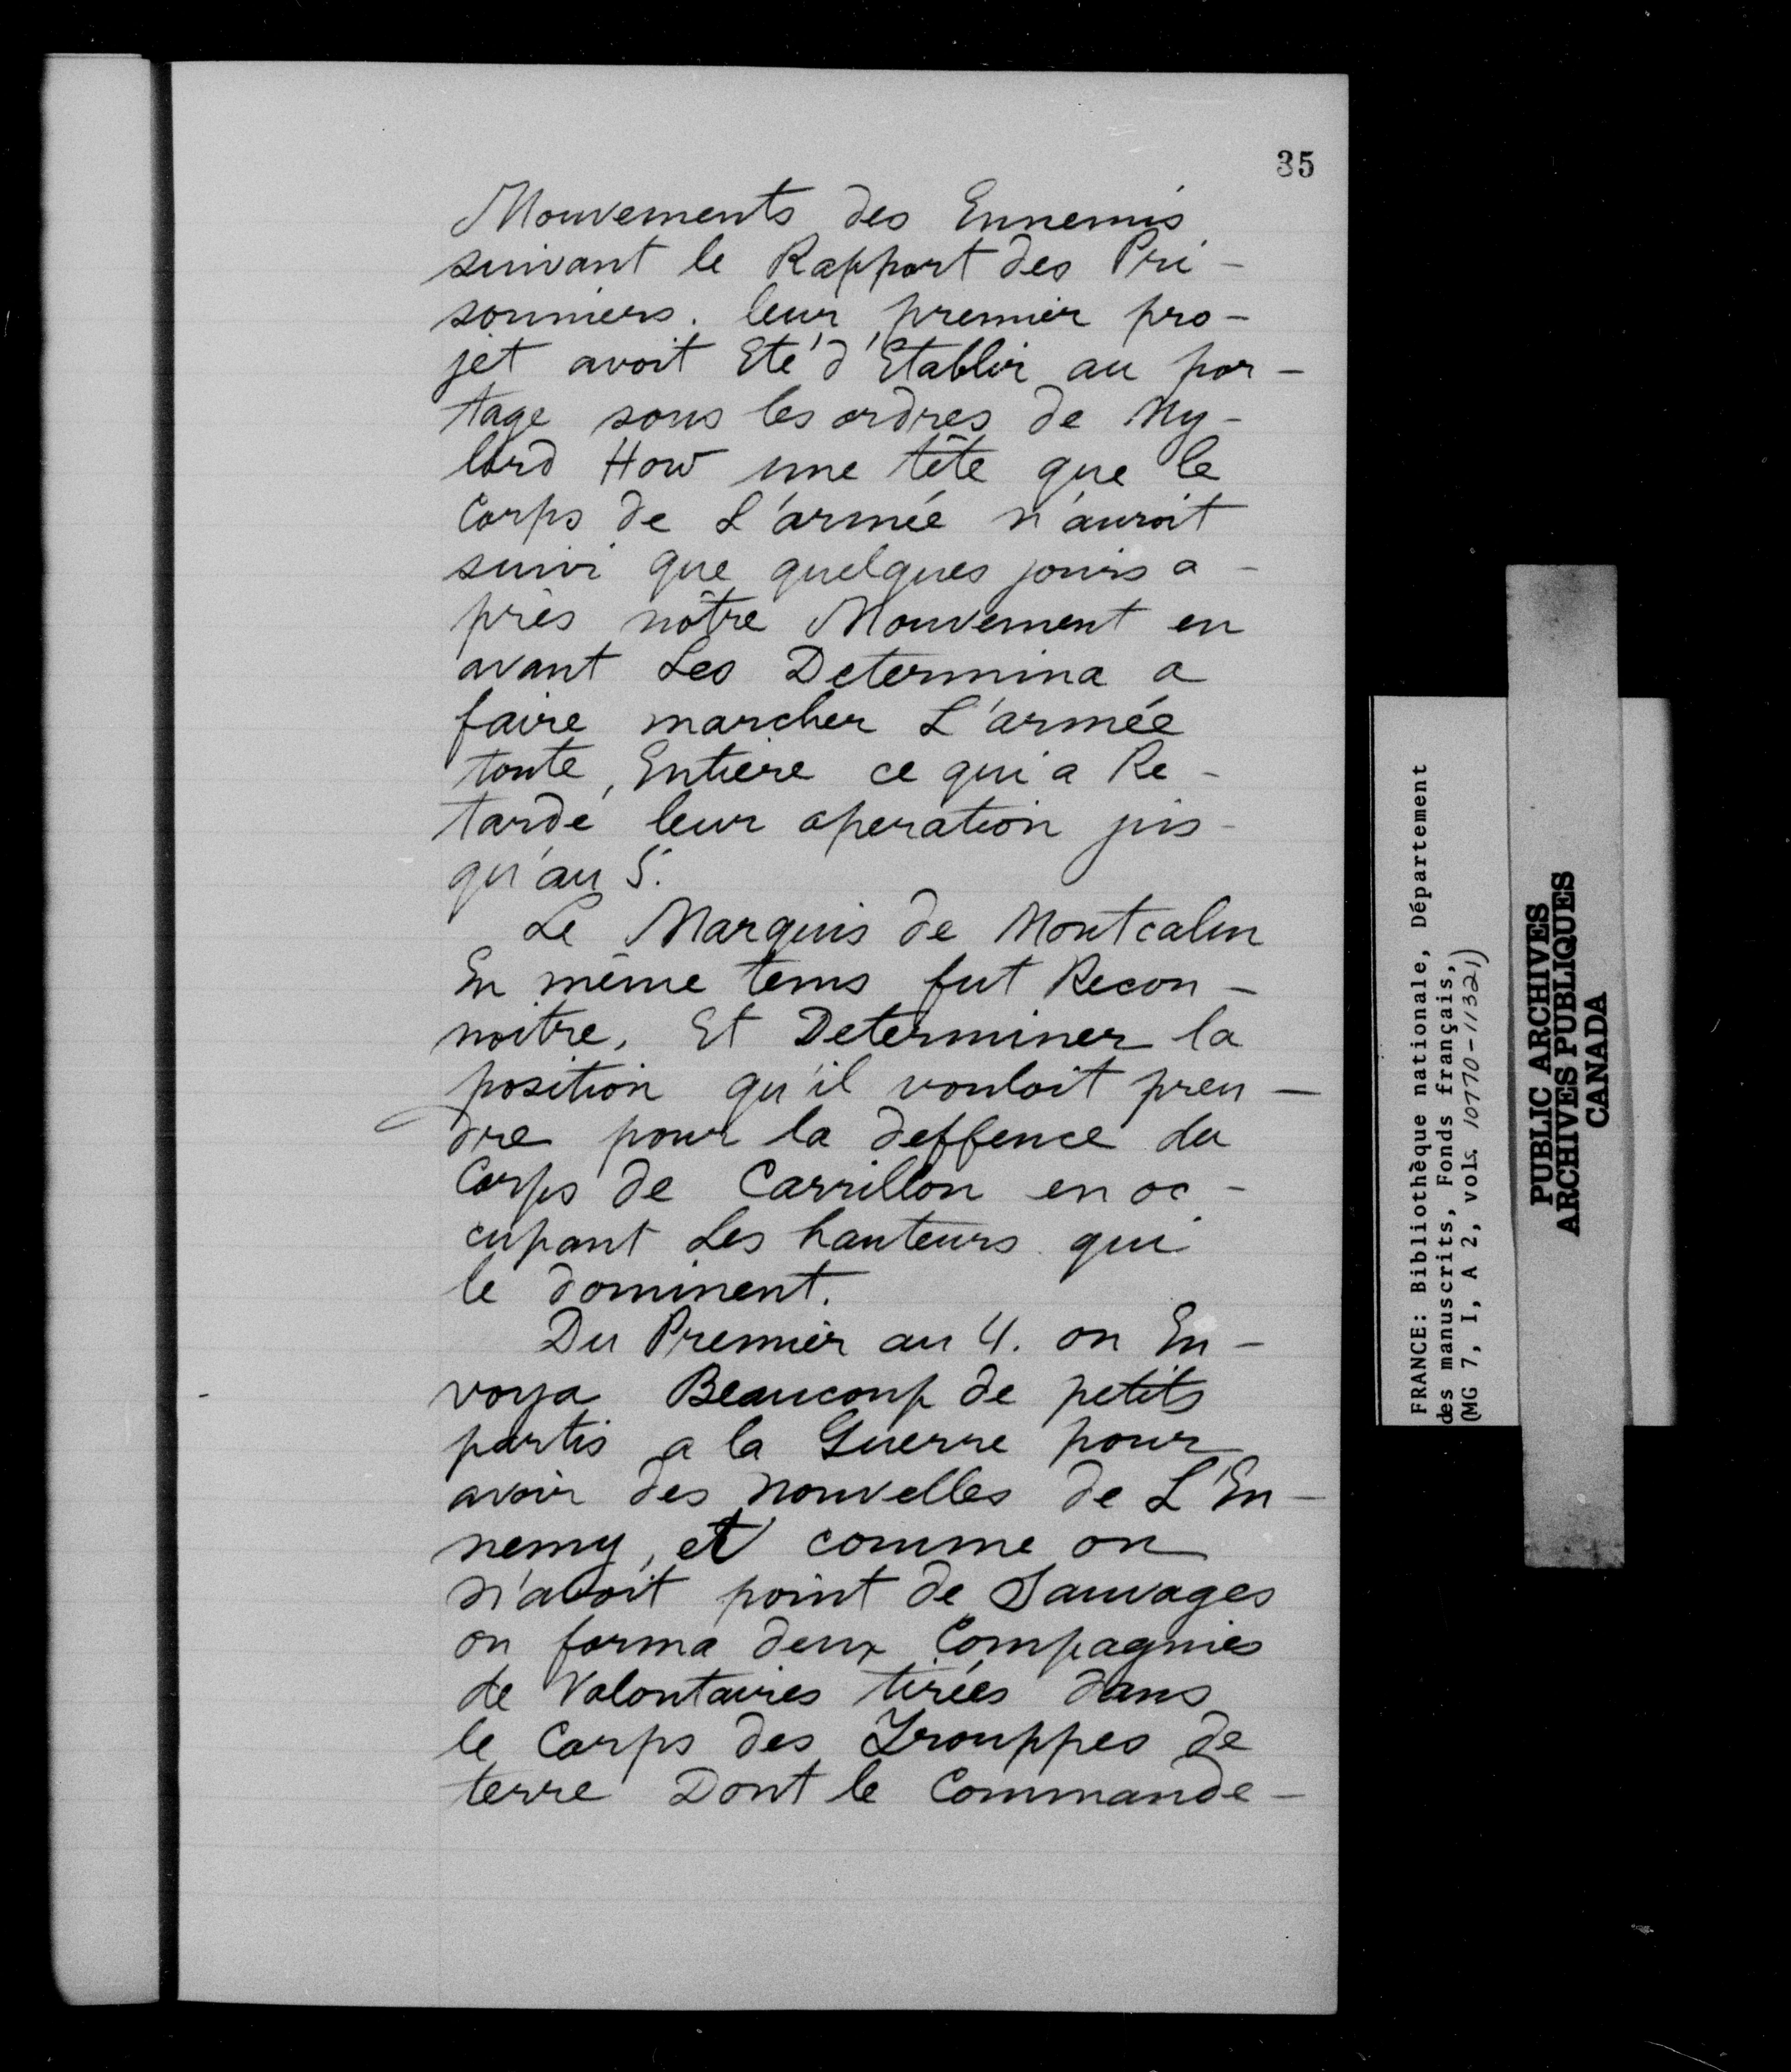 35
Mouvements des Ennemis
suivant le Rapport des Pri-
sonniers. leur premier pro-
jet avoit Eté d'Etablir au por-
tage sous les ordres de My-
lord How une tête que le
Corps de L'armée n'auroit
suivi que quelques jours a-
près nôtre Mouvement en
avant Les Determina a
faire marcher L'armée
toute Entiere ce qui a Re-
tardé leur operation jus-
qu'au 5.
Le Marquis de Montcalm
En même tems fut Recon-
noitre, Et Determiner la
position qu'il vouloit pren-
dre pour la deffence du
Corps de Carrillon en oc-
cupant Les hauteurs qui
le dominent.
Du Premier au 4. on En-
voya Beaucoup de petits
partis a la Guerre pour
avoir des nouvelles de L'En-
nemy, et comme on
n'avoit point de Sauvages
on forma deux Compagnies
de Volontaires tirées dans
le Corps des Trouppes de
terre Dont le Commande-
FRANCE: Bibliothèque nationale, Département
des manuscrits, Fonds français,
(MG 7, I, A 2, vols. 10770-11321)
PUBLIC ARCHIVES
ARCHIVES PUBLIQUES
CANADA